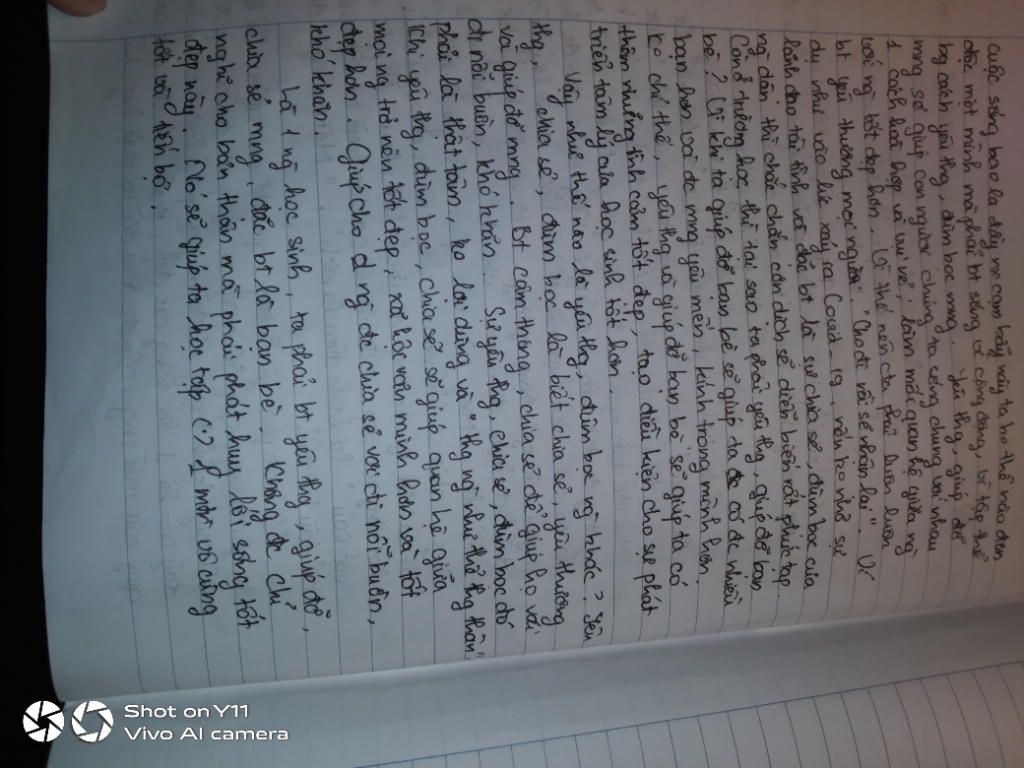 cuộc sống bao la đầy rẫy cạm bẫy này ta ko thể nào đơn
độc một mình mà phải bt sống vì cộng đồng, vì tập thể
bg cách yêu thg, đùm bọc mng. Yêu thg, giúp đỡ
mng sẽ giúp con người chúng ta sống chung với nhau
1 cách hoà hợp và vui vẻ, làm mối quan hệ giữa ng
với ng tốt đẹp hơn. Vì thế nên cta phải luôn luôn
bt yêu thương mọi người. "Cho đi rồi sẽ nhận lại". Ví
dụ như vào lúc xảy ra Covid-19, nếu ko nhờ sự
lãnh đạo tài tình và đặc bt là sự chia sẻ, đùm bọc của
ng dân thì chắc chắn cơn dịch sẽ diễn biến rất phức tạp.
Còn ở trường học thì tại sao ta phải yêu thg, giúp đỡ bạn
bè? Vì khi ta giúp đỡ bạn bè sẽ giúp ta có đc nhiều
bạn hơn và đc mng yêu mến, kính trọng mình hơn.
Ko chỉ thế, yêu thg và giúp đỡ bạn bè sẽ giúp ta có
thêm những tình cảm tốt đẹp, tạo điều kiện cho sự phát
triển tâm lý của học sinh tốt hơn.
Vậy như thế nào là yêu thg, đùm bọc ng khác? Yêu
thg, chia sẻ, đùm bọc là biết chia sẻ, yêu thương
và giúp đỡ mng. Bt cảm thông, chia sẻ để giúp họ vơi
đi nỗi buồn, khó khăn. Sự yêu thg, chia sẻ, đùm bọc đó
phải là thật tâm, ko lợi dụng và "thg ng như thể thg thân".
Khi yêu thg, đùm bọc, chia sẻ sẽ giúp quan hệ giữa
mọi ng trở nên tốt đẹp, xã hội văn minh hơn và tốt
đẹp hơn. Giúp cho ng đc chia sẻ vơi đi nỗi buồn,
khó khăn.
Là 1 ng học sinh, ta phải bt yêu thg, giúp đỡ,
chia sẻ mng, đặc bt là bạn bè. Không đc chỉ
nghĩ cho bản thân mà phải phát huy lối sống tốt
đẹp này. Nó sẽ giúp ta học tập ở 1 mtr vô cùng
tốt và tiến bộ.
Shot on Y11
Vivo AI camera